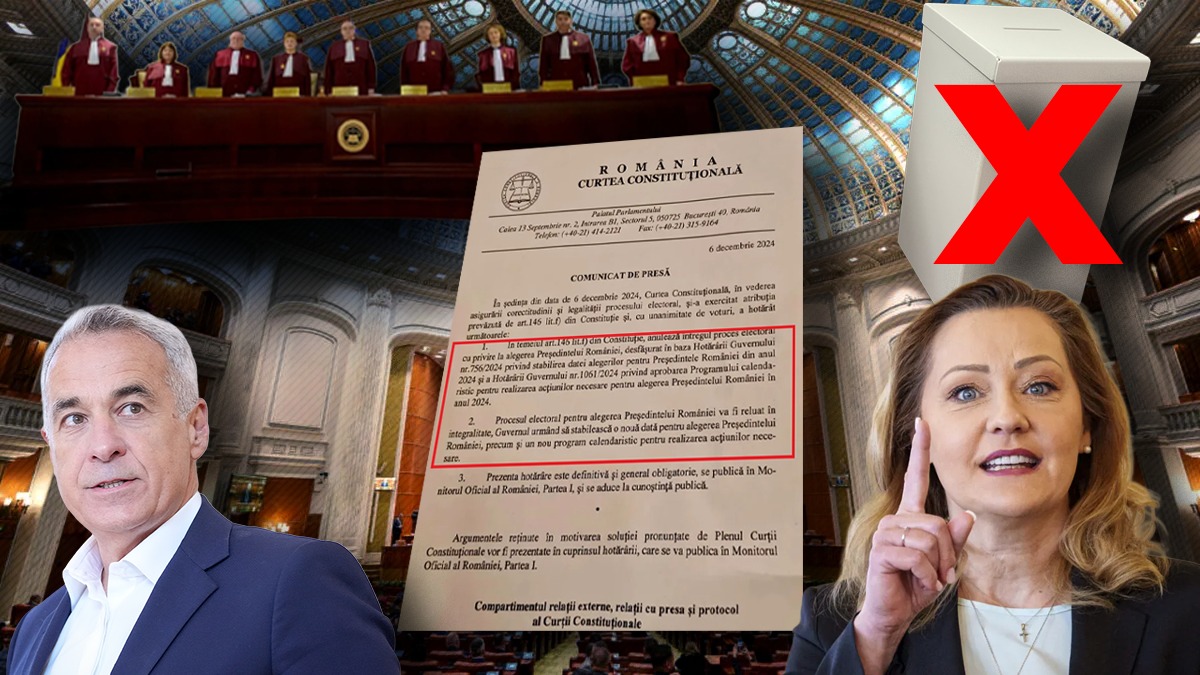 ROMÂNIA
CURTEA CONSTITUŢIONALĂ
Palatul Parlamentului
Calea 13 Septembrie nr. 2, Intrarea B1, Sectorul 5, 050725 Bucureşti 40, România
Telefon: (+40-21) 414-2121 Fax: (+40-21) 315-9164
6 decembrie 2024
COMUNICAT DE PRESĂ
În şedinţa din data de 6 decembrie 2024, Curtea Constituţională, în vederea
asigurării corectitudinii şi legalităţii procesului electoral, şi-a exercitat atribuţia
prevăzută de art.146 lit.f) din Constituţie şi, cu unanimitate de voturi, a hotărât
următoarele:
1. În temeiul art.146 lit.f) din Constituţie, anulează întregul proces electoral
cu privire la alegerea Preşedintelui României, desfăşurat în baza Hotărârii Guvernului
nr.756/2024 privind stabilirea datei alegerilor pentru Preşedintele României din anul
2024 şi a Hotărârii Guvernului nr.1061/2024 privind aprobarea Programului calenda-
ristic pentru realizarea acţiunilor necesare pentru alegerea Preşedintelui României în
anul 2024.
2. Procesul electoral pentru alegerea Preşedintelui României va fi reluat în
integralitate, Guvernul urmând să stabilească o nouă dată pentru alegerea Preşedintelui
României, precum şi un nou program calendaristic pentru realizarea acţiunilor nece-
sare.
3. Prezenta hotărâre este definitivă şi general obligatorie, se publică în Mo-
nitorul Oficial al României, Partea I, şi se aduce la cunoştinţă publică.
Argumentele reţinute în motivarea soluţiei pronunţate de Plenul Curţii
Constituţionale vor fi prezentate în cuprinsul hotărârii, care se va publica în Monitorul
Oficial al României, Partea I.
Compartimentul relaţii externe, relaţii cu presa şi protocol
al Curţii Constituţionale